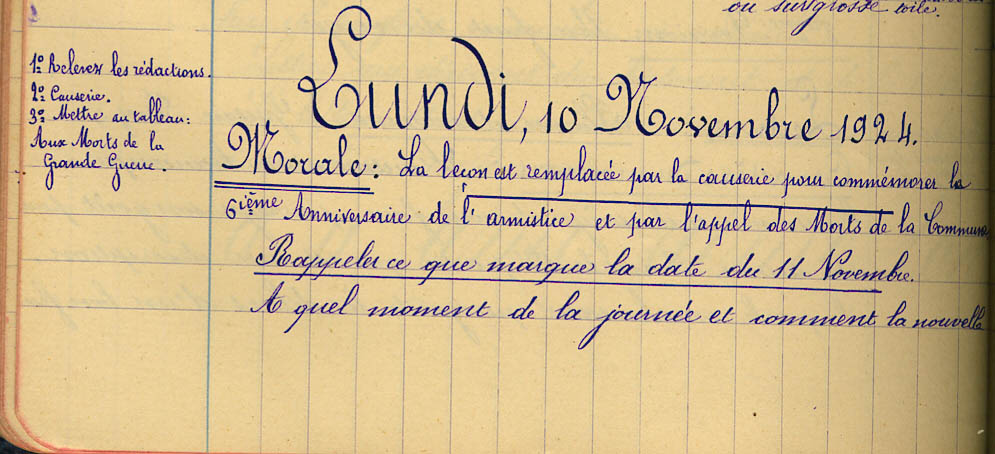 ou sur grosse toile.
1º Relever les rédactions.
2º Causerie.
3º Mettre au tableau:
Aux Morts de la
Grande Guerre.
Lundi, 10 Novembre 1924.
Morale: La leçon est remplacée par la causerie pour commémorer la
6ième Anniversaire de l'armistice et par l'appel des Morts de la Commune
Rappeler ce que marque la date du 11 Novembre.
A quel moment de la journée et comment la nouvelle